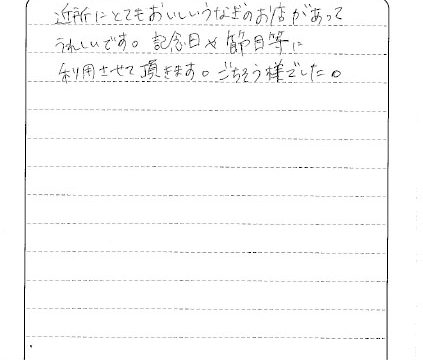 近所にとてもおいしいうなぎのお店があって
うれしいです。記念日や節目等に
利用させて頂きます。ごちそう様でした。